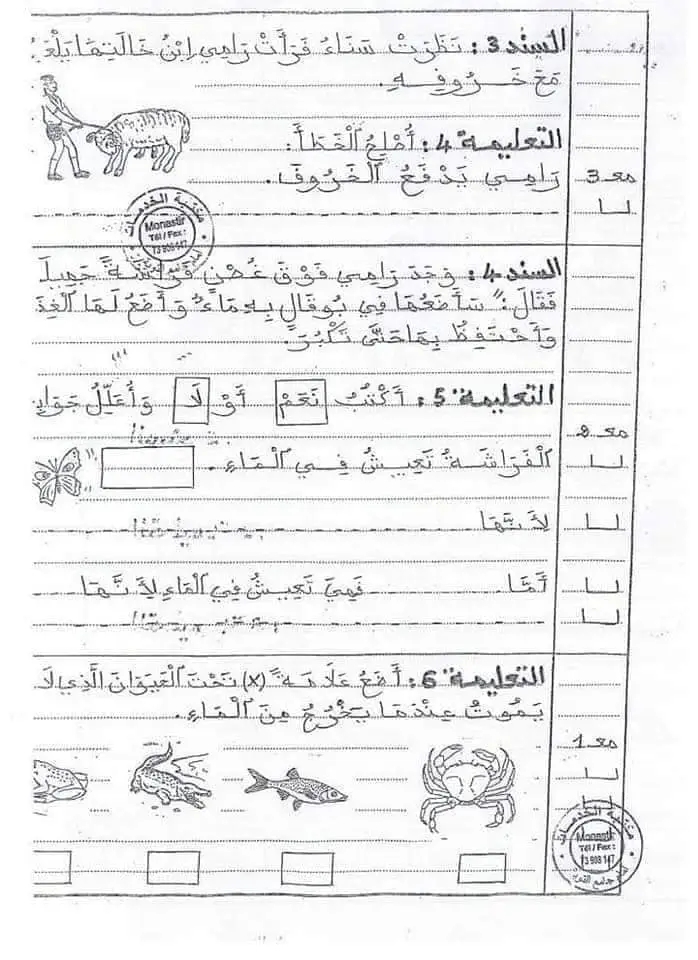 السند 3 : نَظَرَتْ سَنَاءُ فَرَأَتْ رَامِي اِبْنُ خَالَتِهَا يَلْعَبُ
مَعَ خَرُوفِهِ.
التعليمة 4 : أُصْلِحُ الْخَطَأَ :
رَامِي يَدْفَعُ الْخَرُوفَ.
مع 3
مكتبة الخدمات
Monastir
Tél / Fax :
73 908 147
السند 4 : وَجَدَ رَامِي فَوْقَ غُصْنٍ فَرَاشَةً جَمِيلَ
فَقَالَ : " سَأَضَعُهَا فِي بُوقَالٍ بِهِ مَاءٌ وَ أَضَعُ لَهَا الْغِذَ
وَ أَحْتَفِظُ بِهَا حَتَّى تَكْبُرَ.
التعليمة 5 : أَكْتُبُ نَعَمْ أَوْ لَا وَ أُعَلِّلُ جَوَابِ
مع 2
الْفَرَاشَةُ تَعِيشُ فِي الْمَاءِ.
لِأَنَّهَا
أَمَّا فَهِيَ تَعِيشُ فِي الْمَاءِ لِأَنَّهَا
التعليمة 6 : أَضَعُ عَلَامَةً (x) تَحْتَ الْحَيَوَانَ الَّذِي لَا
يَمُوتُ عِنْدَمَا يَخْرُجُ مِنَ الْمَاءِ.
مع 1
مكتبة الخدمات
Monastir
Tél / Fax :
73 908 147